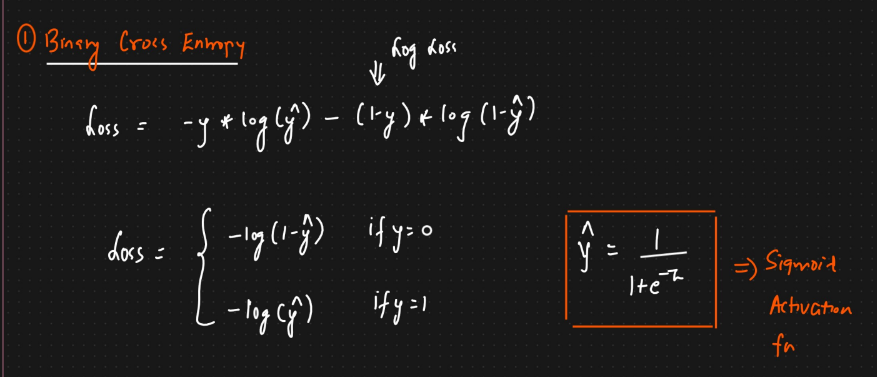 ① Binary Cross Entropy
Log Loss
⇓
Loss = -y * log(ŷ) - (1-y) * log(1-ŷ)
Loss = { -log(1-ŷ) if y=0
-log(ŷ) if y=1
ŷ = 1 / 1+e^-z
=> Sigmoid
Activation
fn